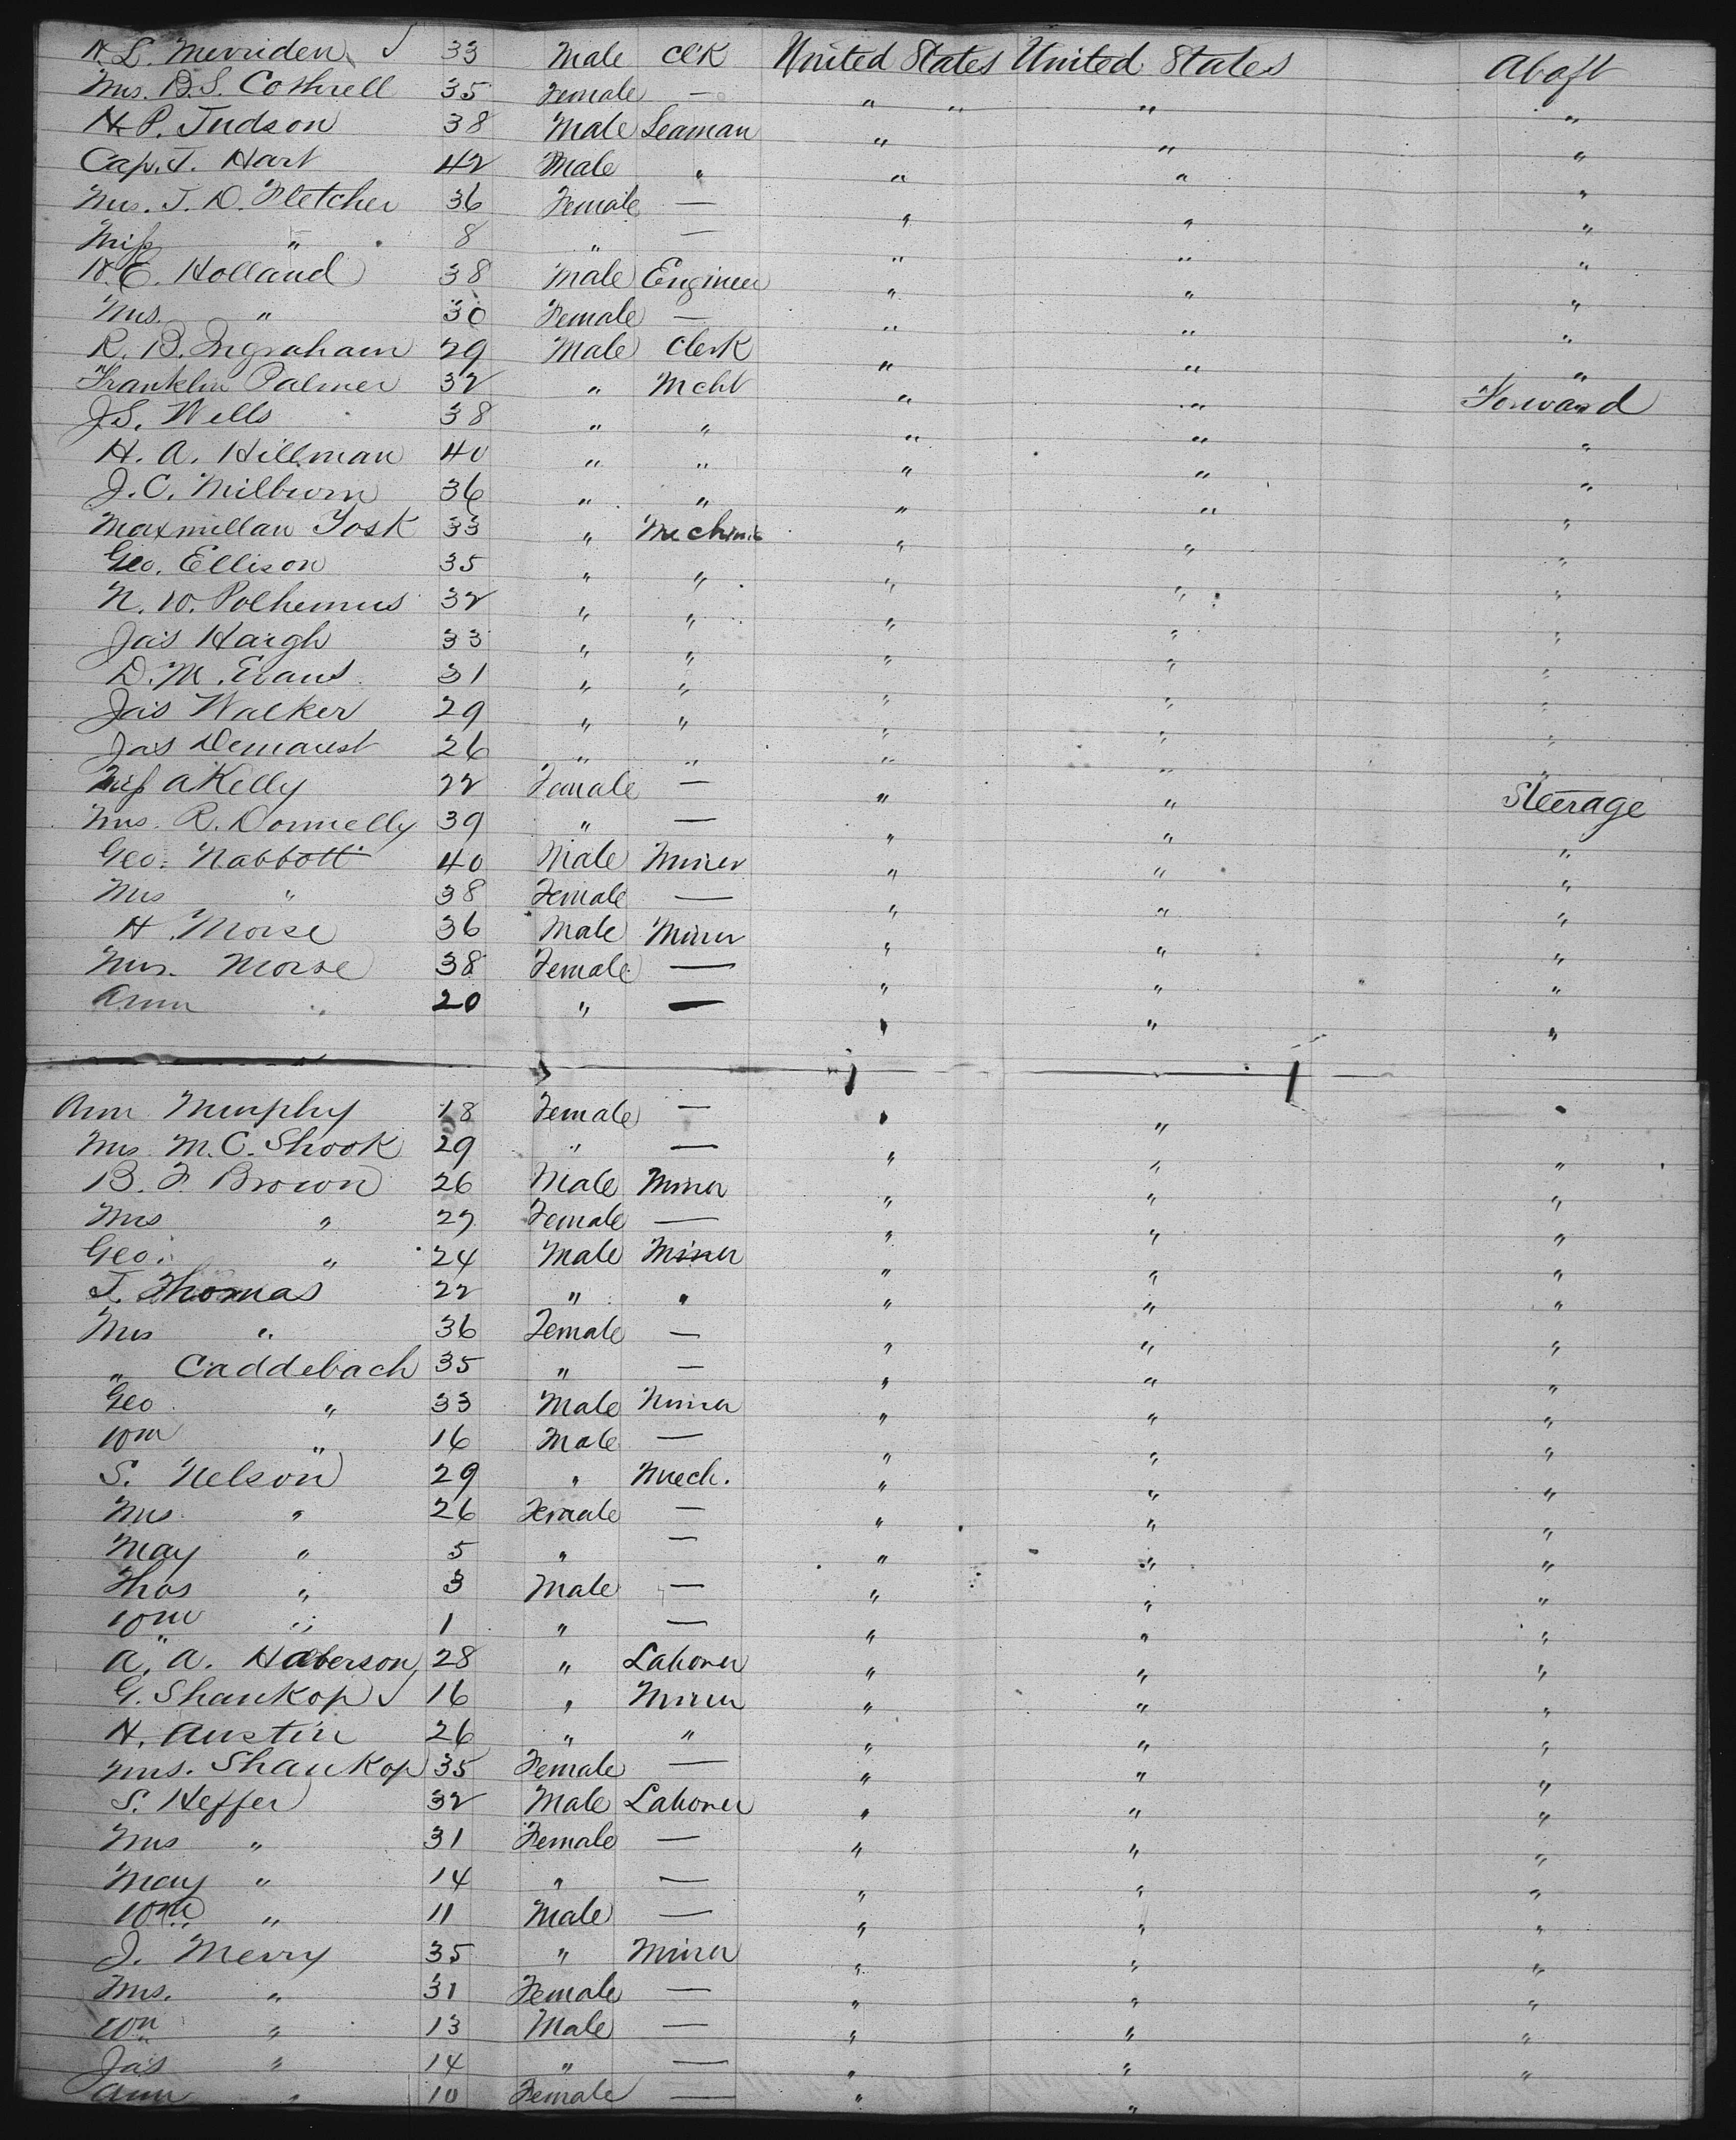 H. L. Merriden 33 Male Clk United States United States Abaft
Mrs. B.S. Cothrell 35 Female — " " " "
H. P. Judson 38 Male Seaman " " "
Cap. J. Hart 42 Male " " " "
Mrs. J. D. Fletcher 36 Female — " " "
Miss " 8 " — " " "
W. E. Holland 38 Male Engineer " " "
Mrs. " 30 Female — " " "
R. B. Ingraham 29 Male Clerk " " "
Franklin Palmer 32 " Mcht " " Forward
J.S. Wells 38 " " " " "
H. A. Hillman 40 " " " " "
J. C. Milburn 36 " " " " "
Maxmillan Yosk 33 " Mechnic " " "
Geo. Ellison 35 " " " " "
N. W. Polhemus 32 " " " " "
Jas Haigh 33 " " " " "
D. M. Evans 31 " " " " "
Jas Walker 29 " " " " "
Jas Demarest 26 " " " " "
Miss A Kelly 22 Female — " " Steerage
Mrs. R. Donnelly 39 " — " " "
Geo. Nabbott 40 Male Miner " " "
Mrs " 38 Female — " " "
H. Morse 36 Male Miner " " "
Mrs. Morse 38 Female — " " "
Ann " 20 " — " " "
Ann Murphy 18 Female — " " "
Mrs M. C. Shook 29 " — " " "
B. F. Brown 26 Male Miner " " "
Mrs " 27 Female — " " "
Geo. " 24 Male Miner " " "
T. Thomas 22 " " " " "
Mrs " 36 Female — " " "
" Caddebach 35 " — " " "
Geo " 33 Male Miner " " "
Wm " 16 Male — " " "
S. Nelson 29 " Mech. " " "
Mrs " 26 Female — " " "
May " 5 " — " " "
Thos " 3 Male — " " "
Wm " 1 " — " " "
A. A. Halberson 28 " Laborer " " "
G. Shankop 16 " Miner " " "
H. Austin 26 " " " " "
Mrs. Shankop 35 Female — " " "
S. Heffer 32 Male Laborer " " "
Mrs " 31 Female — " " "
May " 14 " — " " "
Wm " 11 Male — " " "
J. Merry 35 " Miner " " "
Mrs. " 31 Female — " " "
Wm " 13 Male — " " "
Jas " 14 " — " " "
Ann " 10 Female — " "